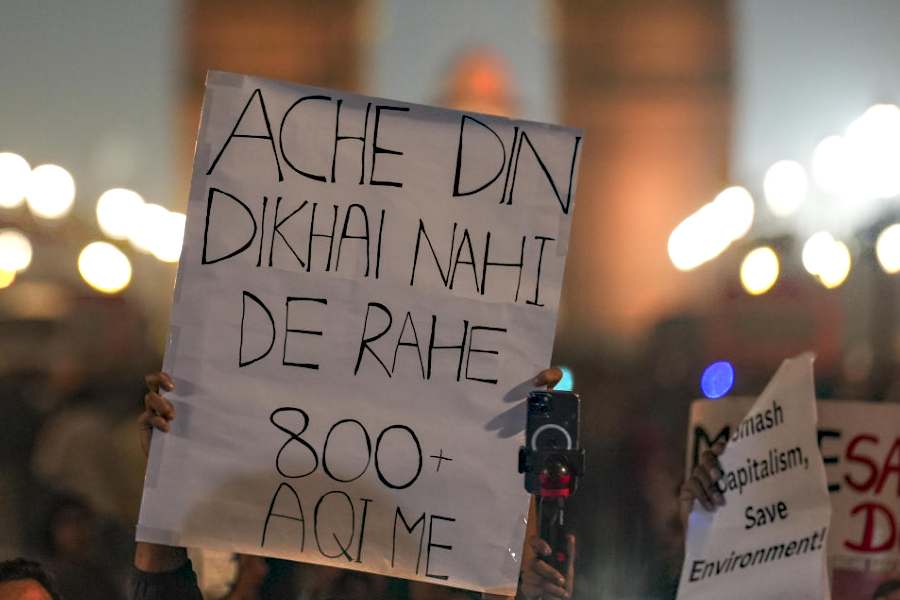 ACHE DIN
DIKHAI NAHI
DE RAHE
800+
AQI ME
Smash
Capitalism,
Save
Environment!